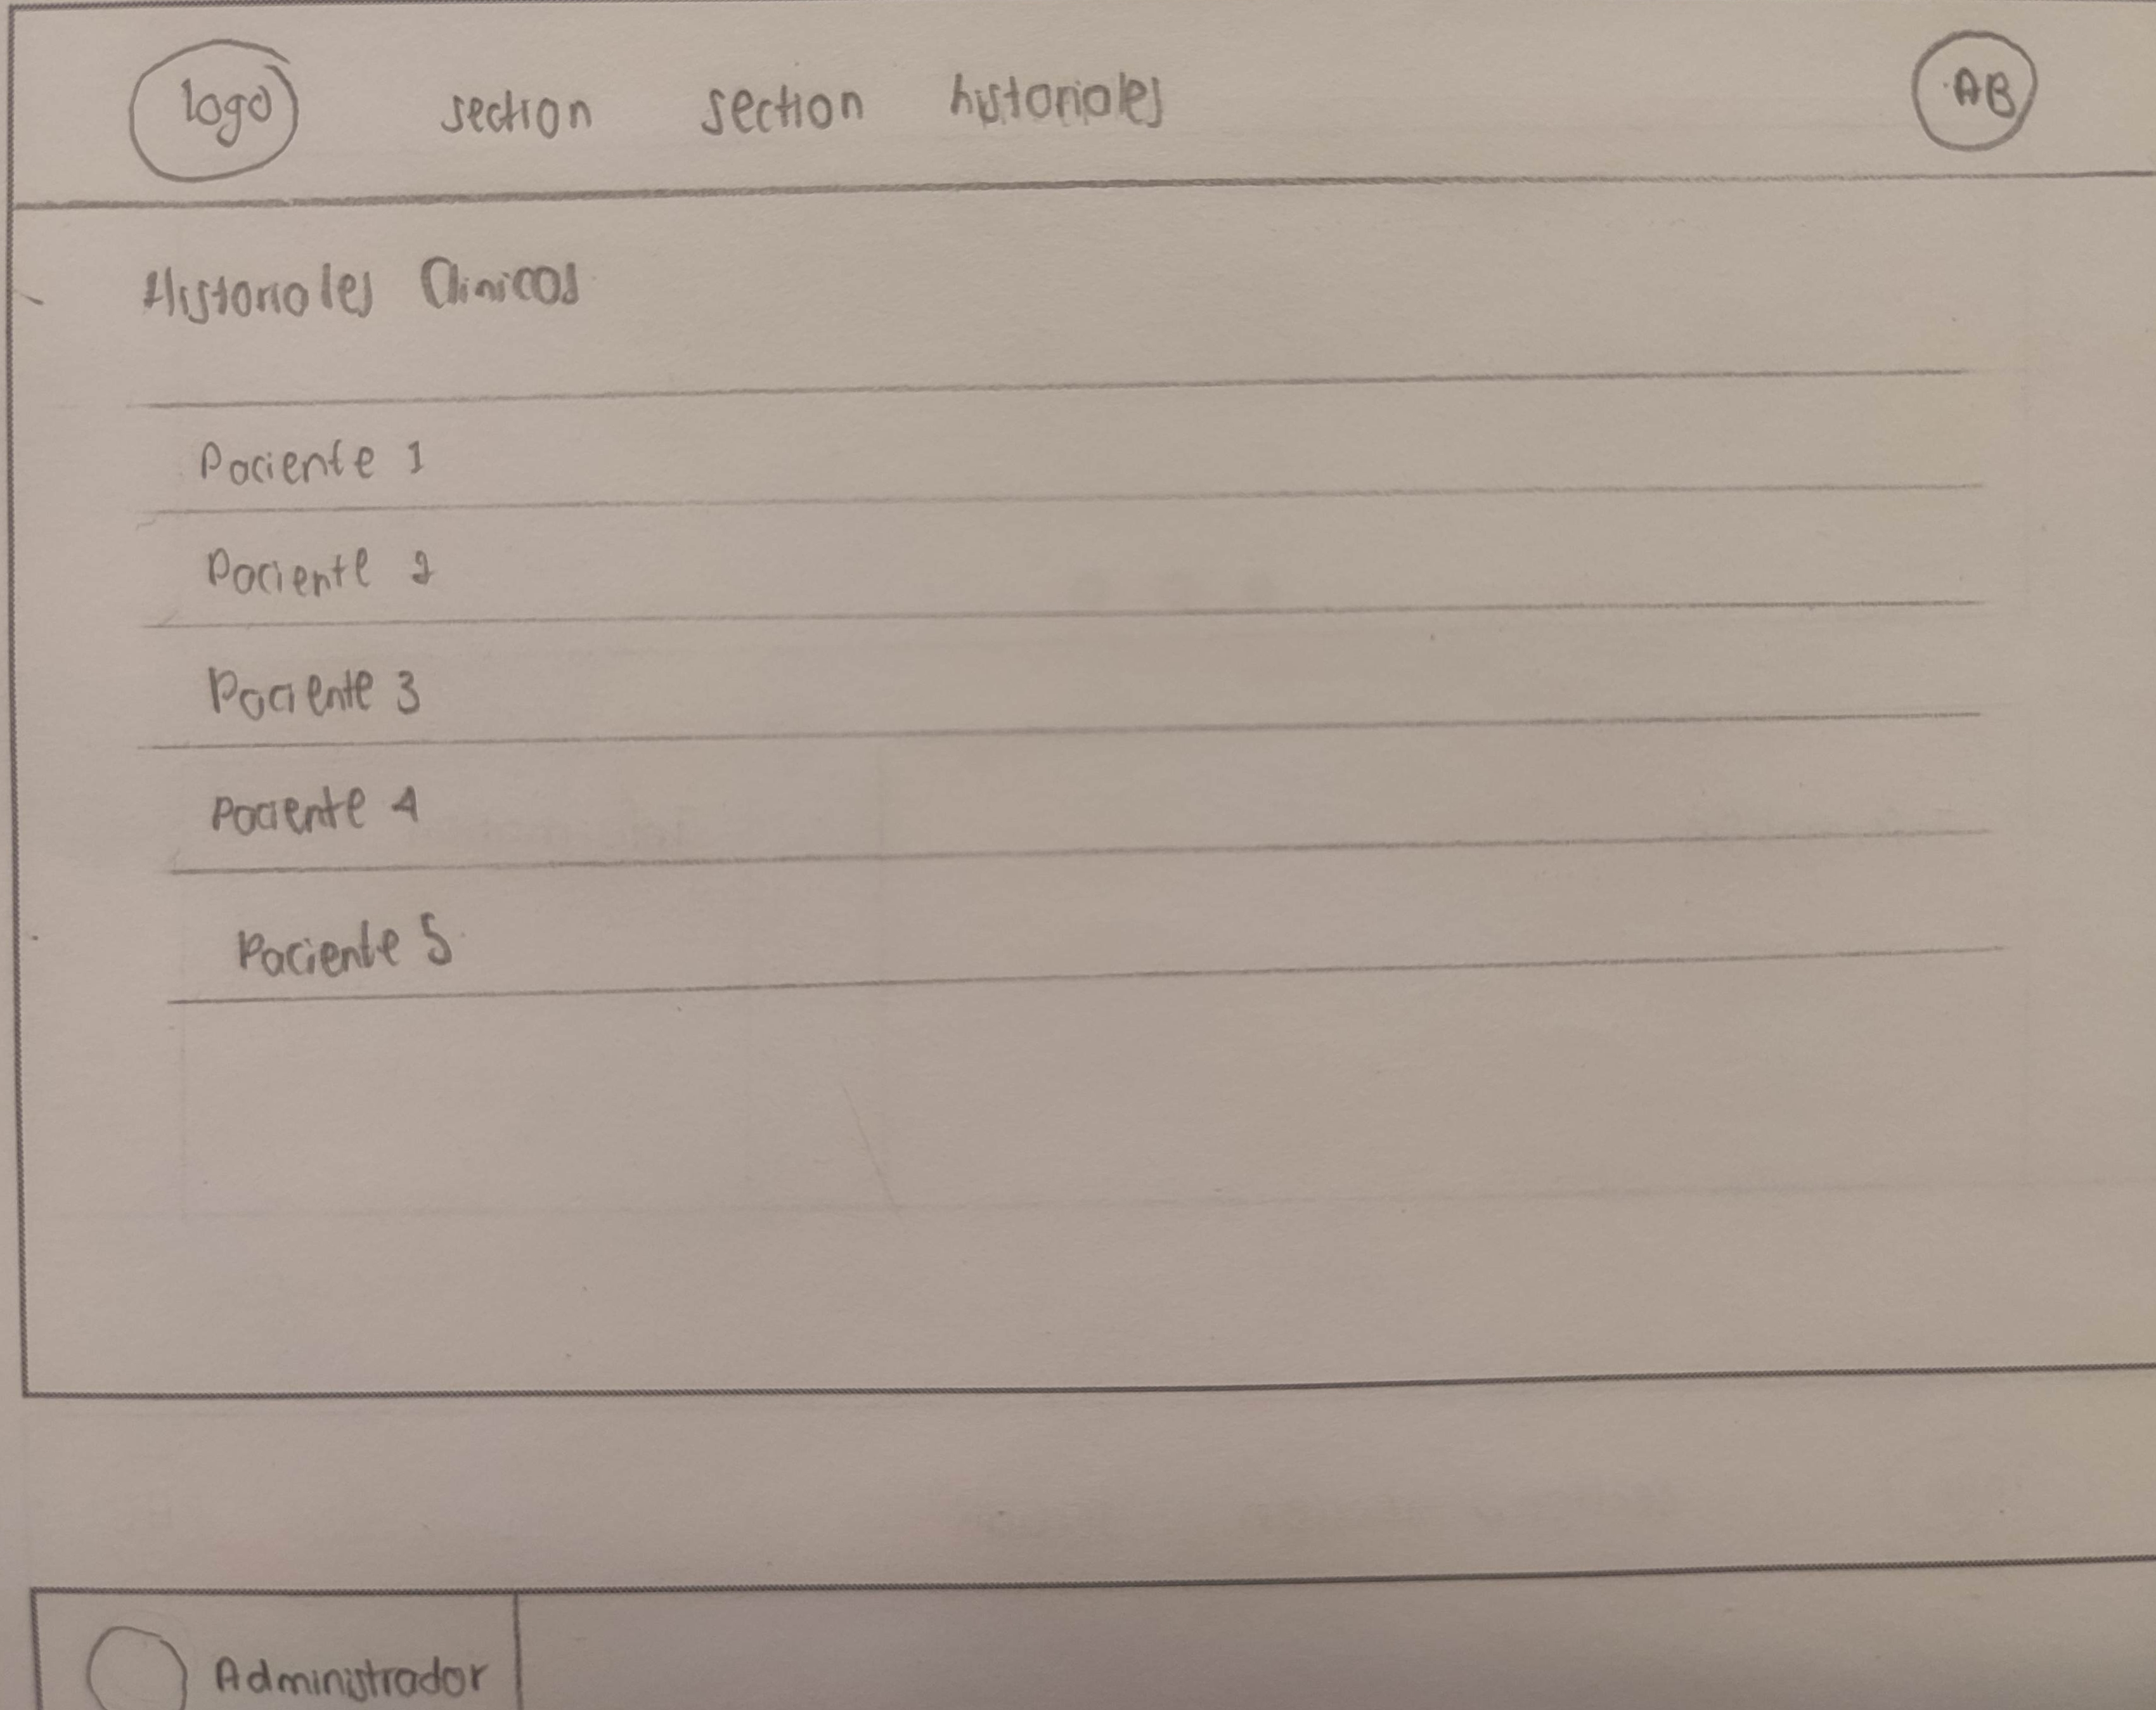 logo section section historiales AB
Historiales Clinicos
Paciente 1
Paciente 2
Paciente 3
Paciente 4
Paciente 5
Administrador